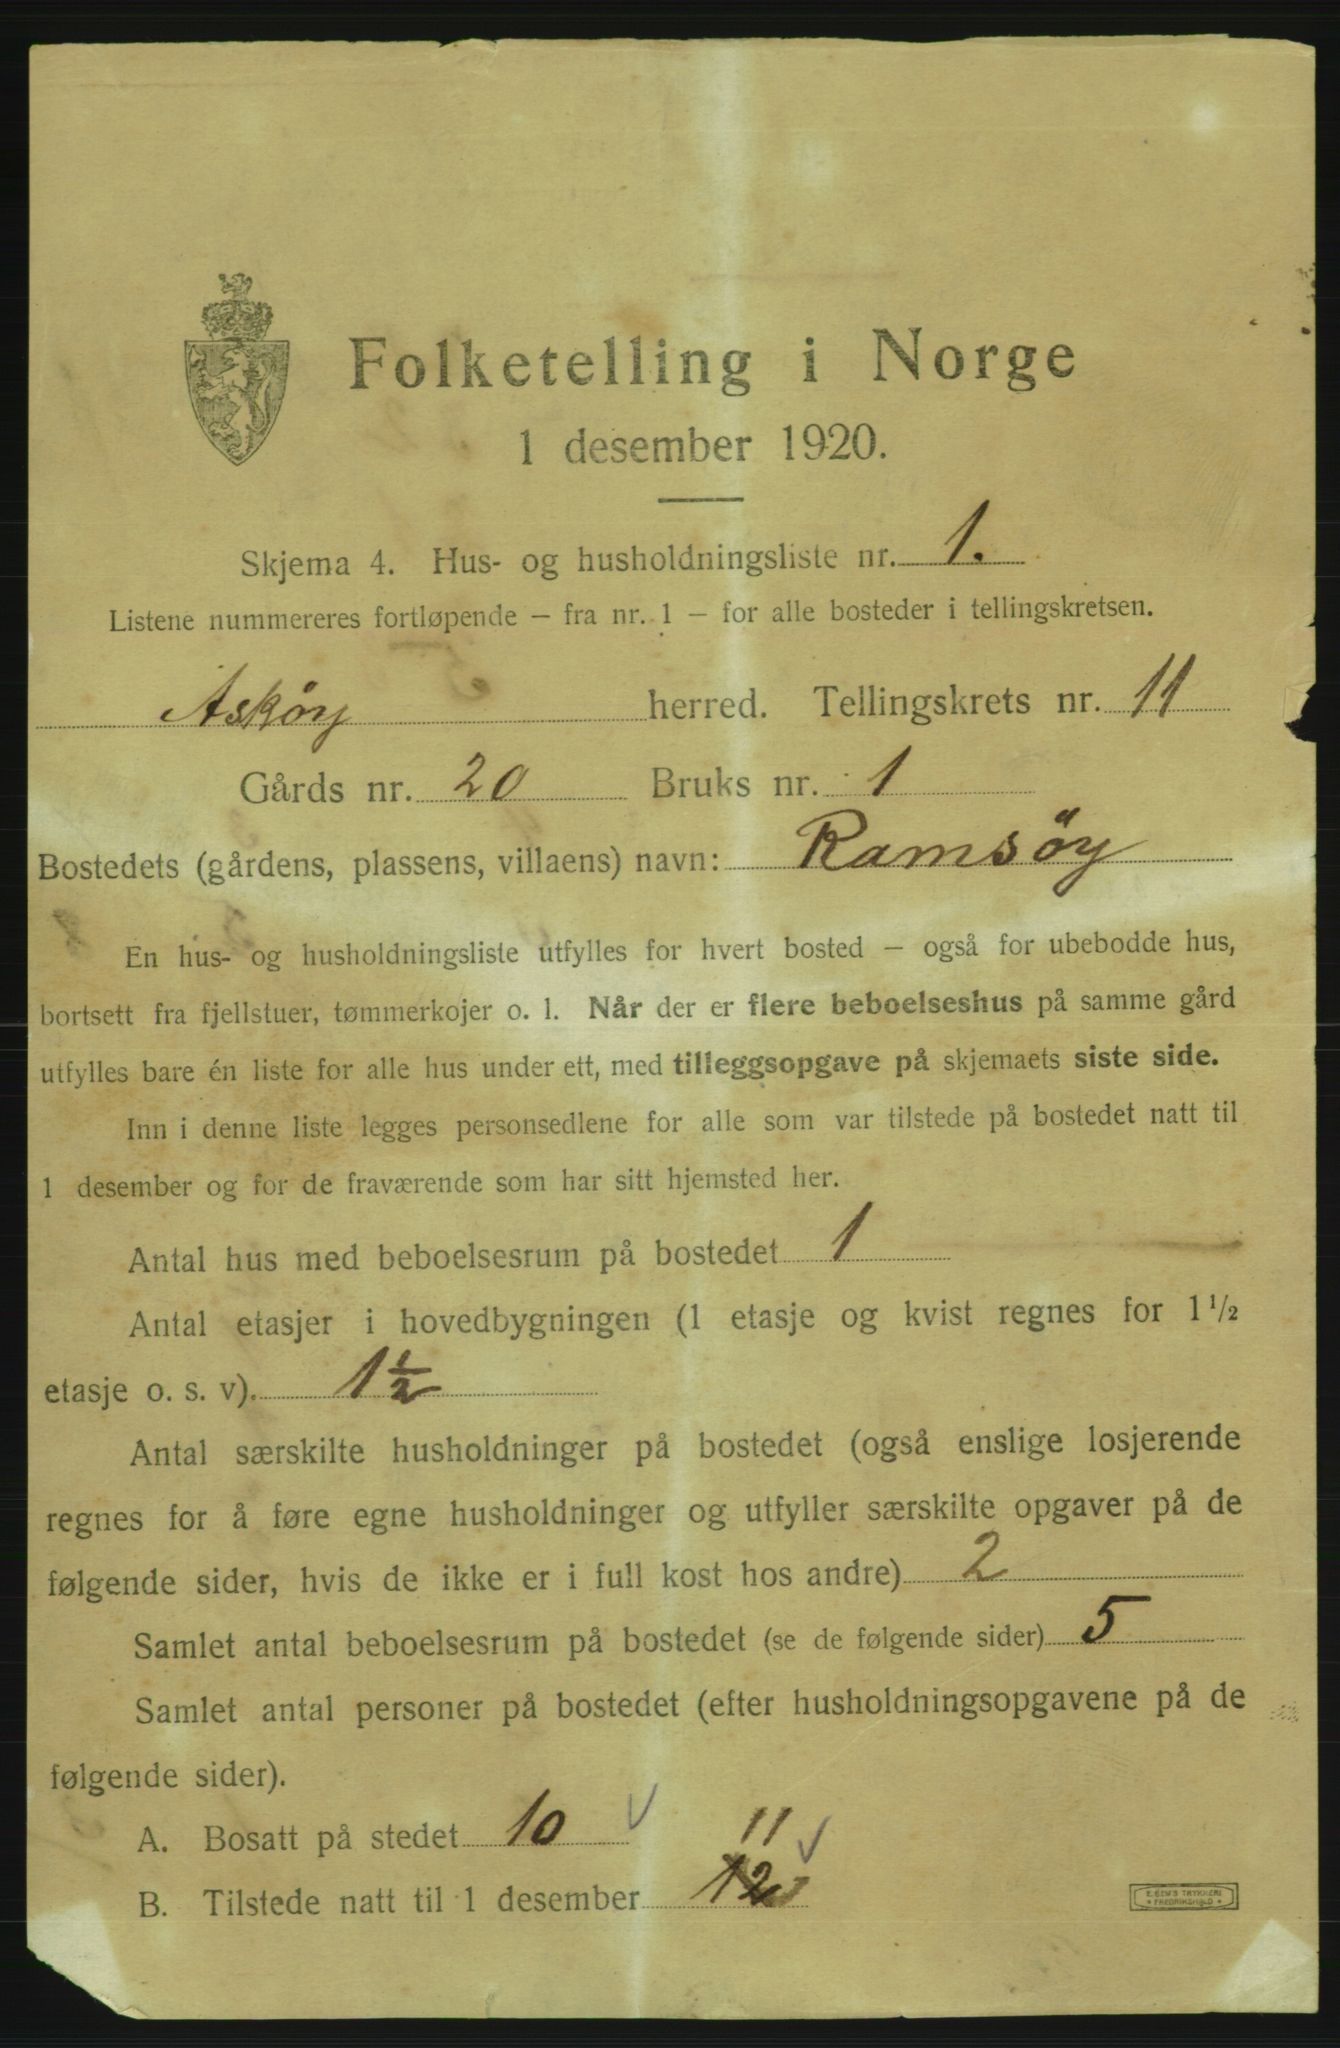 Folketelling i Norge
1 desember 1920.
Skjema 4. Hus- og husholdningsliste nr. 1.
Listene nummereres fortløpende – fra nr. 1 – for alle bosteder i tellingskretsen.
Askøy herred. Tellingskrets nr. 11
Gårds nr. 20 Bruks nr. 1
Bostedets (gårdens, plassens, villaens) navn: Ramsöy
En hus- og husholdningsliste utfylles for hvert bosted – også for ubebodde hus,
bortsett fra fjellstuer, tømmerkojer o. l. Når der er flere beboelseshus på samme gård
utfylles bare én liste for alle hus under ett, med tilleggsopgave på skjemaets siste side.
Inn i denne liste legges personsedlene for alle som var tilstede på bostedet natt til
1 desember og for de fraværende som har sitt hjemsted her.
Antal hus med beboelsesrum på bostedet 1
Antal etasjer i hovedbygningen (1 etasje og kvist regnes for 1 1/2
etasje o. s. v). 1 1/2
Antal særskilte husholdninger på bostedet (også enslige losjerende
regnes for å føre egne husholdninger og utfyller særskilte opgaver på de
følgende sider, hvis de ikke er i full kost hos andre) 2
Samlet antal beboelsesrum på bostedet (se de følgende sider) 5
Samlet antal personer på bostedet (efter husholdningsopgavene på de
følgende sider).
A. Bosatt på stedet 10
11
B. Tilstede natt til 1 desember 12
E. SEM'S TRYKKERI
FREDRIKSHALD